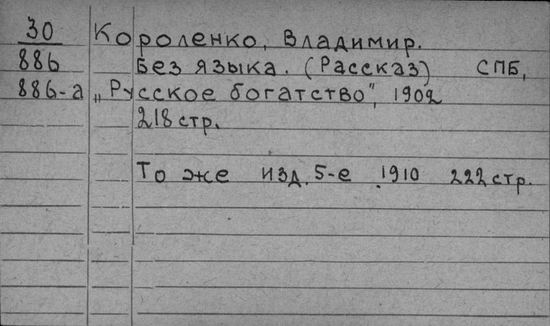 30 Короленко, Владимир.
886 Без языка. (Рассказ) СПБ,
886-а „Русское богатство", 1902
218 стр.
То же изд. 5-е 1910 222 стр.